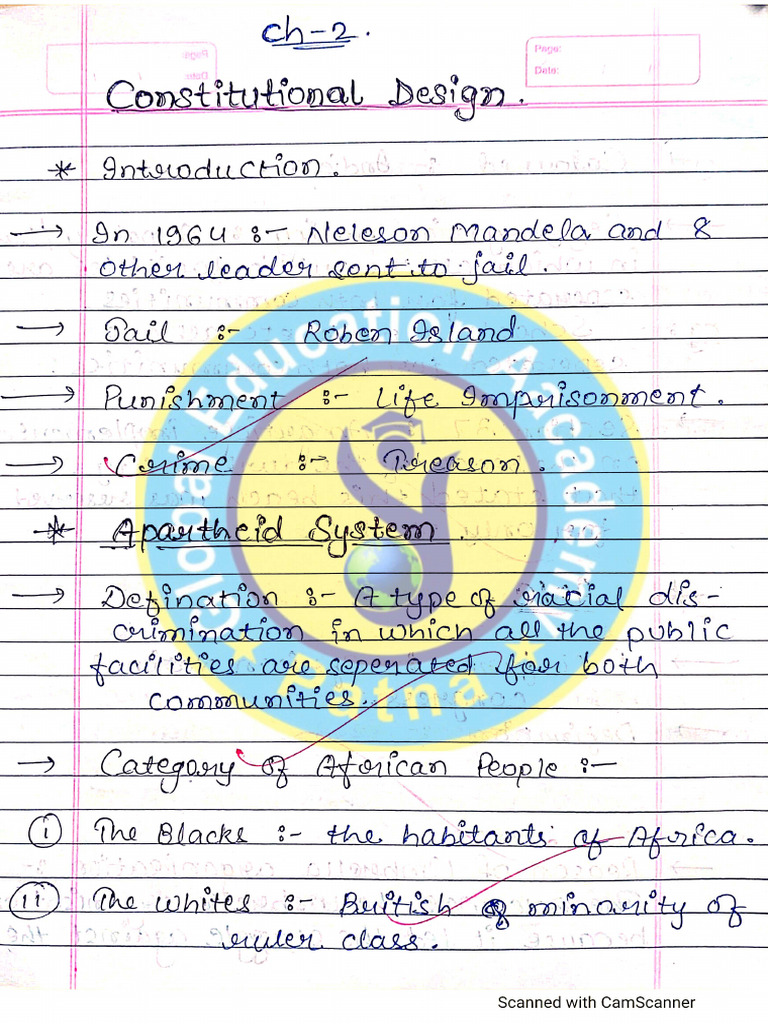 Ch-2.
Page:
Date:
Constitutional Design.
* Introduction.
→ In 1964 :- Neleson Mandela and 8
other leader sent to jail.
→ Jail :- Roben Island
→ Punishment :- Life Imprisonment.
→ Crime :- Treason.
* Apartheid System.
→ Defination :- A type of racial dis-
crimination in which all the public
facilities are seperated for both
communities.
→ Category of African People :-
(i) The Blacks :- the habitants of Africa.
(ii) The whites :- British & minarity of
ruler class.
Global Education Azcademy
Patna
Scanned with CamScanner